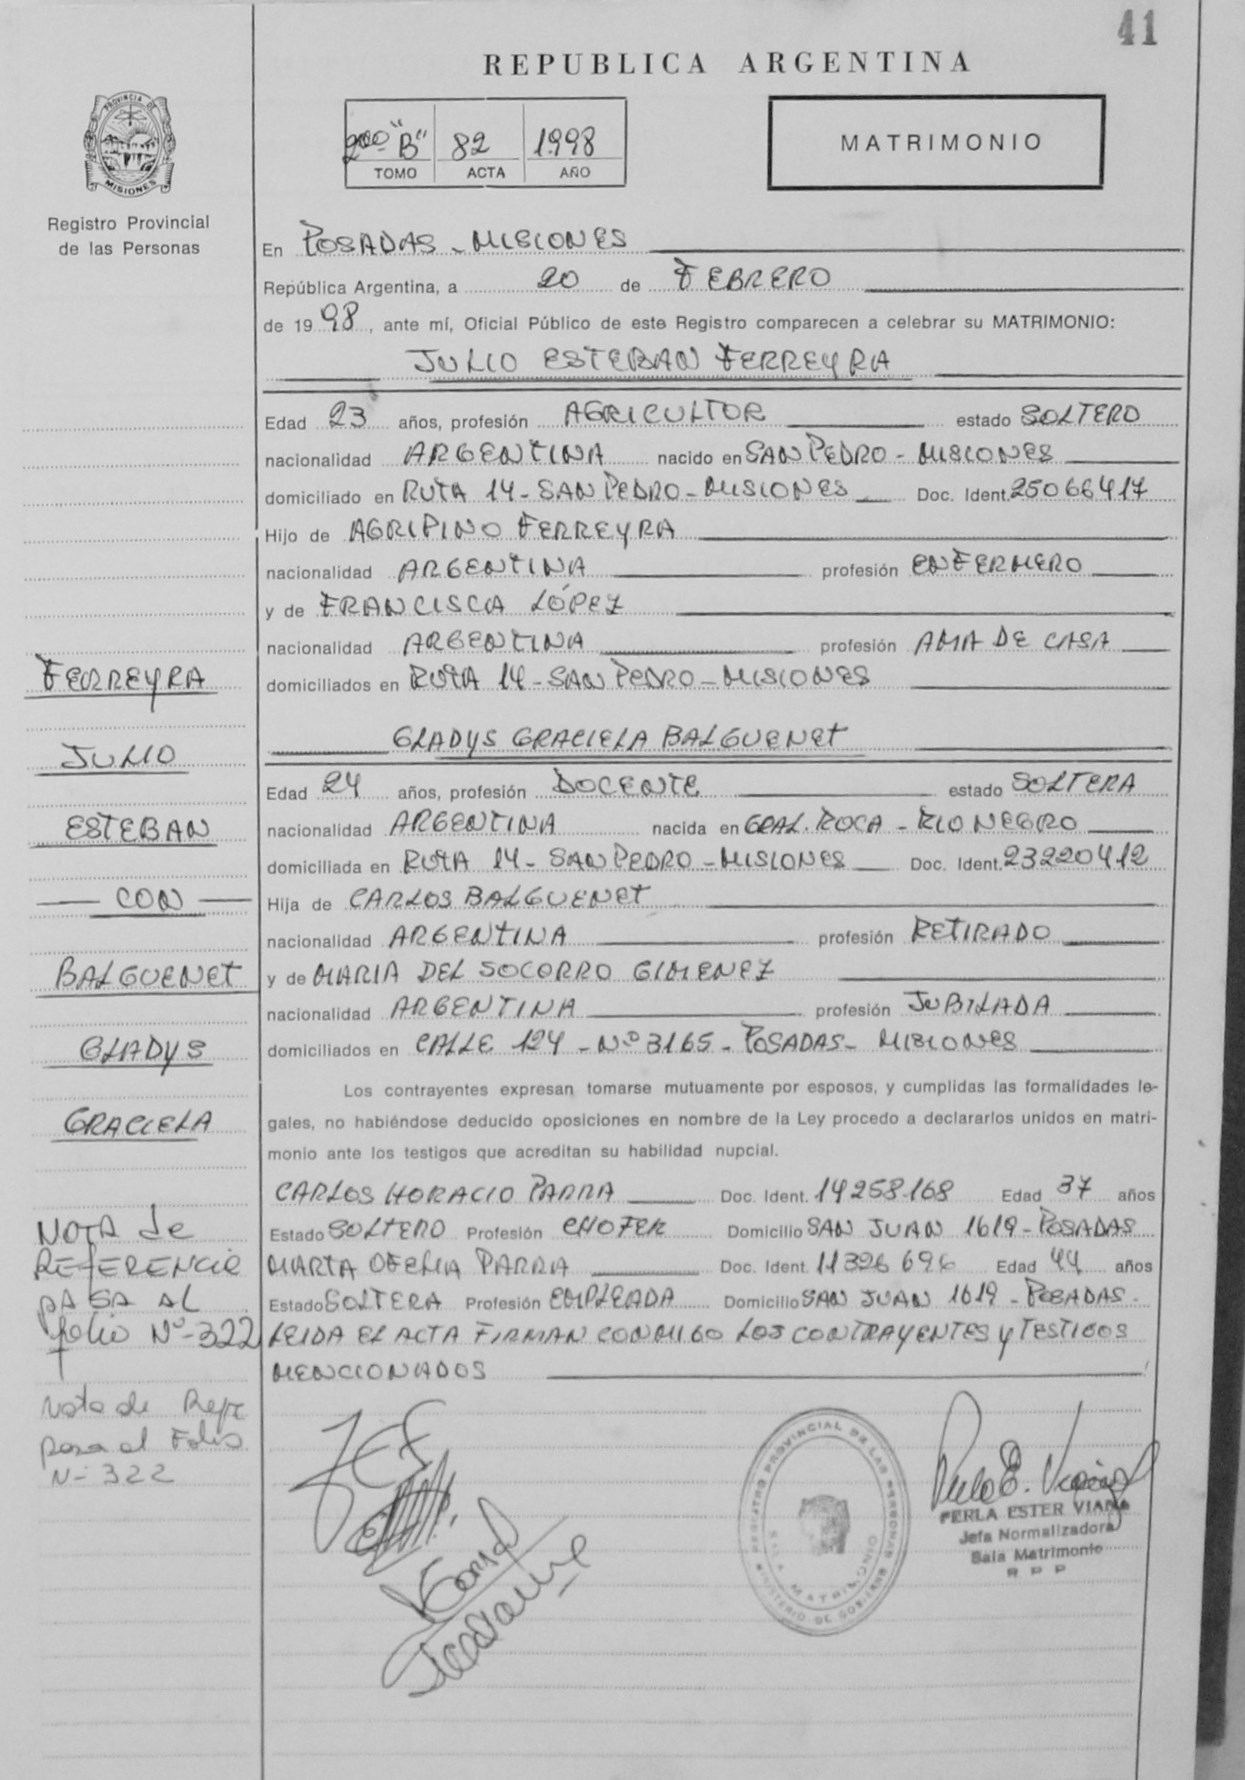 41
REPUBLICA ARGENTINA
2do "B" 82 1998
TOMO ACTA AÑO
MATRIMONIO
PROVINCIA DE
MISIONES
Registro Provincial
de las Personas
En POSADAS - MISIONES
República Argentina, a 20 de FEBRERO
de 1998, ante mí, Oficial Público de este Registro comparecen a celebrar su MATRIMONIO:
JULIO ESTEBAN FERREYRA
Edad 23 años, profesión AGRICULTOR estado SOLTERO
nacionalidad ARGENTINA nacido en SAN PEDRO - MISIONES
domiciliado en RUTA 14 - SAN PEDRO - MISIONES Doc. Ident. 25066417
Hijo de AGRIPINO FERREYRA
nacionalidad ARGENTINA profesión ENFERMERO
y de FRANCISCA LÓPEZ
nacionalidad ARGENTINA profesión AMA DE CASA
domiciliados en RUTA 14 - SAN PEDRO - MISIONES
GLADYS GRACIELA BALGUENET
Edad 24 años, profesión DOCENTE estado SOLTERA
nacionalidad ARGENTINA nacida en GRAL. ROCA - RIO NEGRO
domiciliada en RUTA 14 - SAN PEDRO - MISIONES Doc. Ident. 23220412
Hija de CARLOS BALGUENET
nacionalidad ARGENTINA profesión RETIRADO
y de MARIA DEL SOCORRO GIMENEZ
nacionalidad ARGENTINA profesión JUBILADA
domiciliados en CALLE 124 - Nº 3165 - POSADAS - MISIONES
Los contrayentes expresan tomarse mutuamente por esposos, y cumplidas las formalidades le-
gales, no habiéndose deducido oposiciones en nombre de la Ley procedo a declararlos unidos en matri-
monio ante los testigos que acreditan su habilidad nupcial.
CARLOS HORACIO PARRA Doc. Ident. 14258168 Edad 37 años
Estado SOLTERO Profesión CHOFER Domicilio SAN JUAN 1619 - POSADAS
MARTA OFELIA PARRA Doc. Ident. 11396696 Edad 44 años
Estado SOLTERA Profesión EMPLEADA Domicilio SAN JUAN 1619 - POSADAS -
LEIDA EL ACTA FIRMAN CONMIGO LOS CONTRAYENTES y TESTIGOS
MENCIONADOS
FERREYRA
JULIO
ESTEBAN
CON
BALGUENET
GLADYS
GRACIELA
NOTA de
REFERENCIA
PASA AL
folio Nº-322
Nota de Refe
pasa al Folio
Nº 322
REGISTRO PROVINCIAL DE LAS PERSONAS
SALA MATRIMONIO
MINISTERIO DE GOBIERNO
PERLA ESTER VIANA
Jefa Normalizadora
Sala Matrimonio
R P P